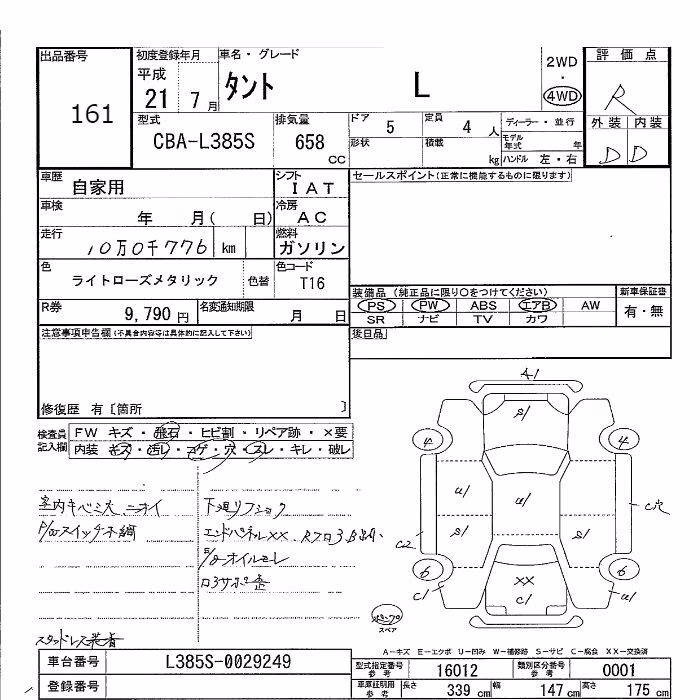 出品番号
161
初度登録年月
平成
21 7月
車名・グレード
タント L
2WD
・
4WD
評価点
R
外装 内装
D D
型式
CBA-L385S
排気量
658
CC
ドア 5
定員 4 人
形状
積載 kg
ディーラー・並行
モデル年式 年
ハンドル 左・右
車歴
自家用
シフト
IAT
セールスポイント(正常に機能するものに限ります)
車検
年 月( 日)
冷房
AC
走行
10万0千776 km
燃料
ガソリン
色
ライトローズメタリック
色替
色コード
T16
装備品 (純正品に限り○をつけてください)
新車保証書
PS PW ABS エアB AW
有・無
SR ナビ TV カワ
R券
9,790 円
名変通知期限
月 日
注意事項申告欄(不具合内容等は具体的に記入して下さい)
後日品
修復歴 有〔箇所 〕
検査員記入欄
FW キズ・飛石・ヒビ割・リペア跡・×要
内装 キズ・汚レ・コゲ・穴・スレ・キレ・破レ
A1
S1
4 4
U1 U1
S1 S1
C2
C穴
6 6
XX
C1
C1 U1
室内キベミ大 ニオイ
P/wスイッチ不備
スペア
スタッドレス装着
A-キズ E-エクボ U-凹み W-補修跡 S-サビ C-腐食 XX-交換済
車台番号
L385S-0029249
登録番号
型式指定番号
参考
16012
類別区分番号
参考
0001
車原証明用
参考
長さ 339 cm
幅 147 cm
高さ 175 cm